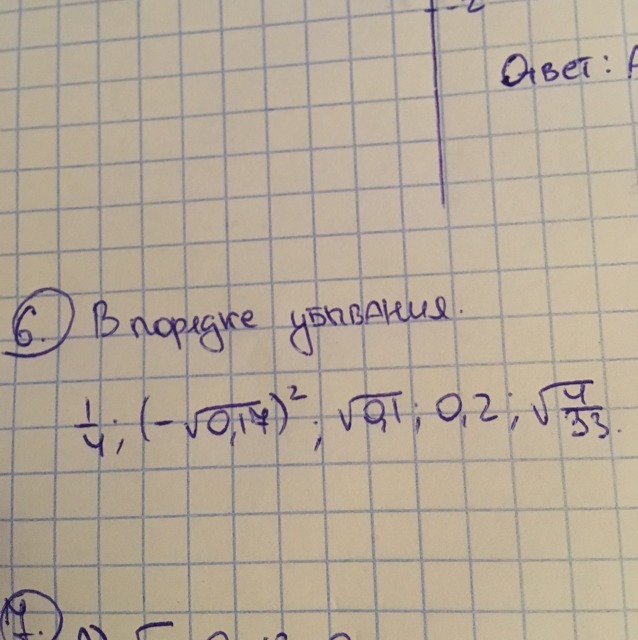 -2
Ответ: А
6. В порядке убывания.
1/4; (-√0,17)²; √0,1; 0,2; √4/33.
7.